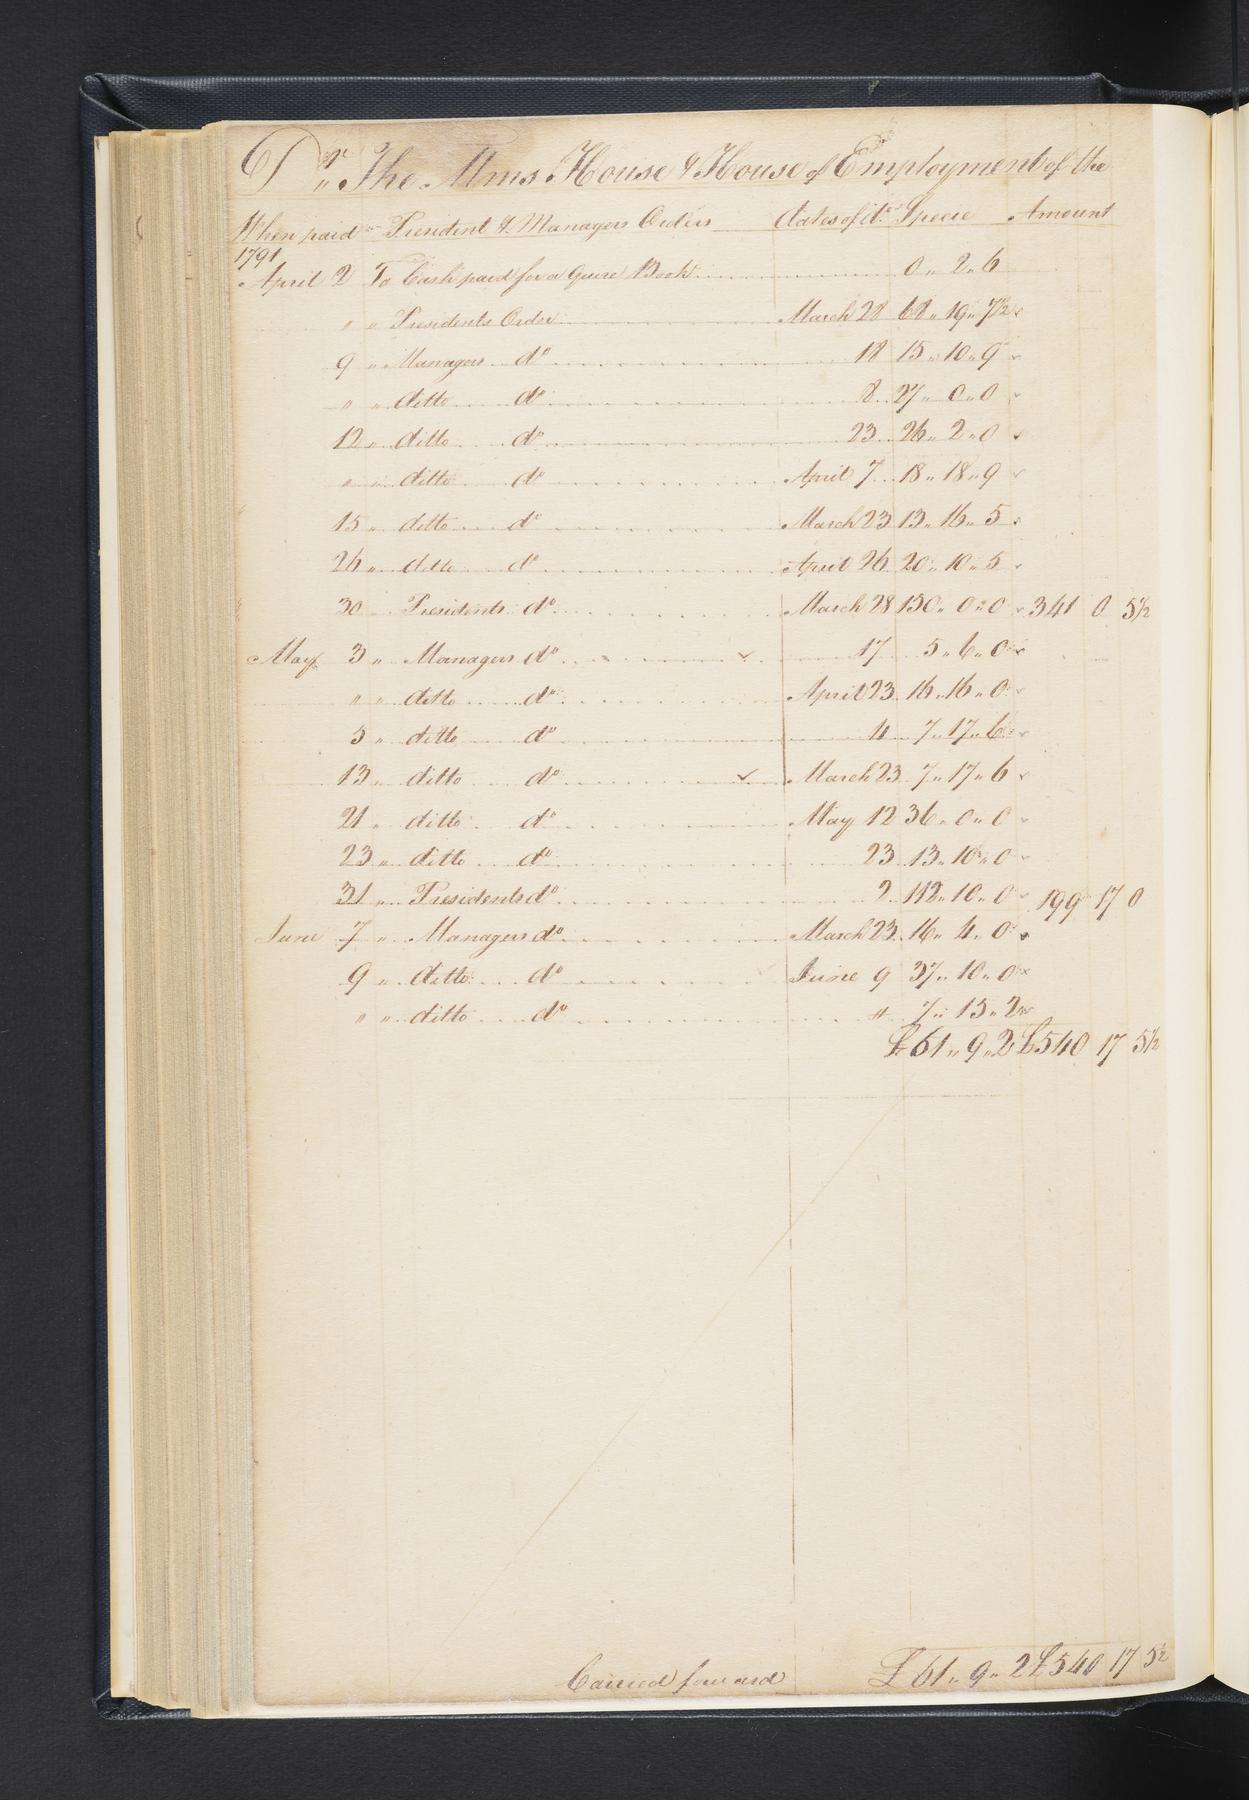 Dr „ The Alms House & House of Employment of the
When paid President & Managers Orders dates of do. Specie Amount
1791
April 2 To Cash paid for a Quire Book 0 „ 2 „ 6
„ „ Presidents Order March 28 68 „ 19 „ 7½
9 „ Managers do 18 15 „ 10 „ 9
„ „ ditto do 8 27 „ 0 „ 0
12 „ ditto do 23 26 „ 2 „ 0
„ „ ditto do April 7 18 „ 18 „ 9
15 „ ditto do March 23 13 „ 16 „ 5
26 „ ditto do April 26 20 „ 10 „ 5
30 Presidents do March 28 150 „ 0 „ 0 341 0 5½
May 3 „ Managers do 17 5 „ 6 „ 0
„ „ ditto do April 23 16 „ 16 „ 0
5 „ ditto do 4 7 „ 17 „ 6
13 „ ditto do March 23 7 „ 17 „ 6
21 „ ditto do May 12 36 „ 0 „ 0
23 „ ditto do 23 13 „ 10 „ 0
31 „ Presidents do 2 112 „ 10 „ 0 199 17 0
June 7 „ Managers do March 23 16 „ 4 „ 0
9 „ ditto do June 9 37 „ 10 „ 0
„ „ ditto do „ 7 „ 15 „ 2
£61 „ 9 „ 2 £540 17 5½
Carried forward £61 „ 9 „ 2 £540 17 5½